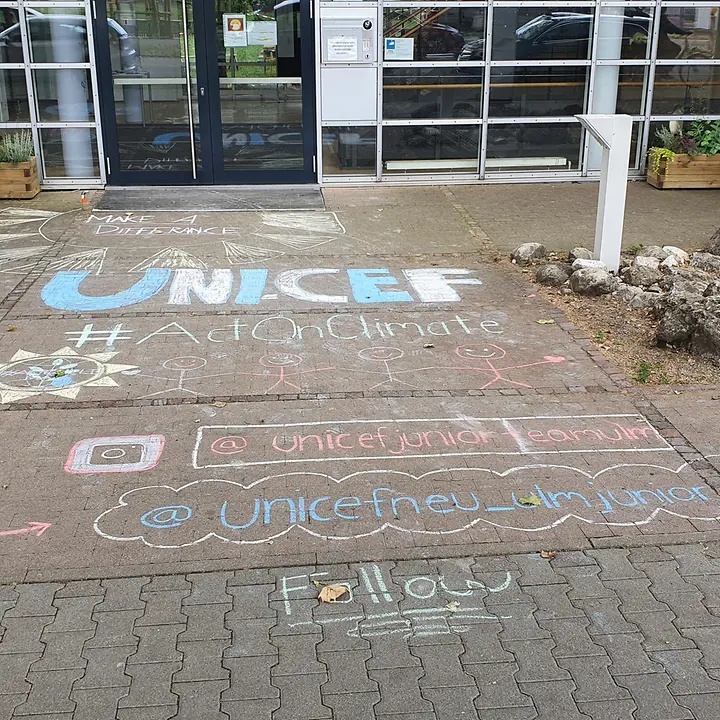 MAKE A
DIFFERENCE
UNICEF
#ActOnClimate
@unicefjuniorteamulm
@unicefneu_ulmjunior
Follow